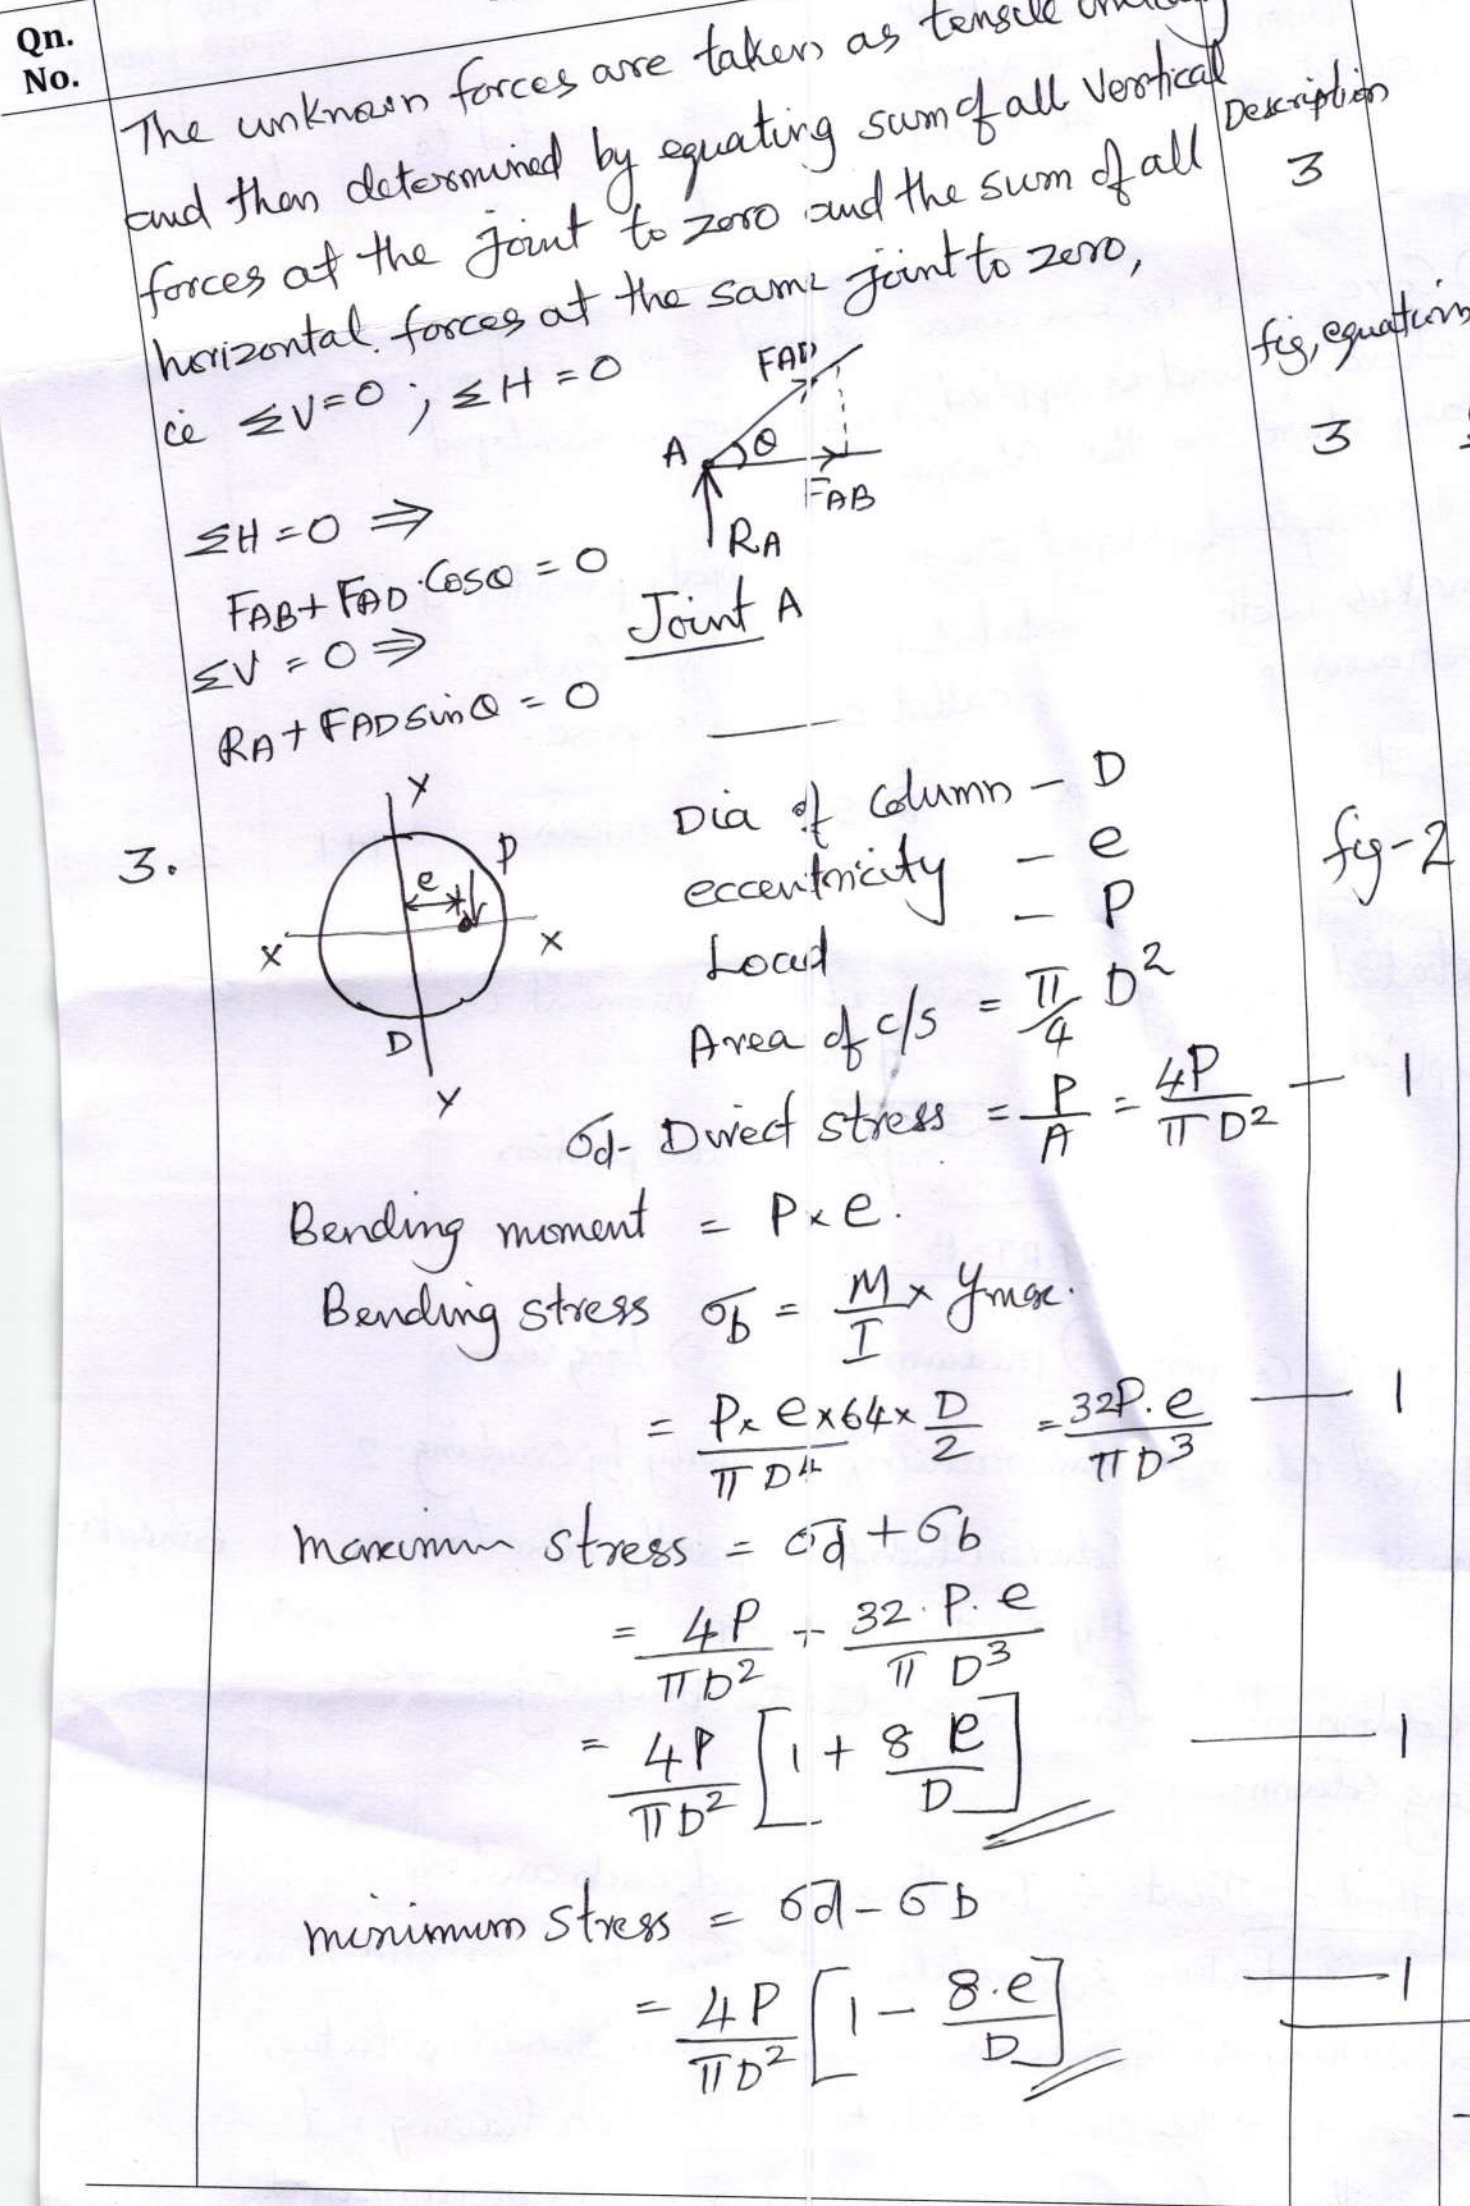 Qn.
No.
The unknown forces are taken as tensile
and then determined by equating sum of all vertical
forces at the joint to zero and the sum of all
horizontal forces at the same joint to zero,
ie ΣV=0 ; ΣH=0
Description
3
fig, equation
3
FAD
A θ
FAB
RA
Joint A
ΣH=0 ⇒
FAB+FAD.Cosθ=0
ΣV=0 ⇒
RA+FAD sinθ=0
3.
Y
P
e
X X
D
Y
Dia of column - D
eccentricity - e
Load - P
Area of c/s = π/4 D²
fig-2
σd- Direct stress = P/A = 4P/πD² — 1
Bending moment = P×e.
Bending stress σb = M/I × ymax.
= P×e×64/πD⁴ × D/2 = 32P.e/πD³ — 1
maximum stress = σd+σb
= 4P/πD² + 32.P.e/πD³
= 4P/πD² [1 + 8e/D] — 1
minimum stress = σd-σb
= 4P/πD² [1 - 8.e/D] — 1